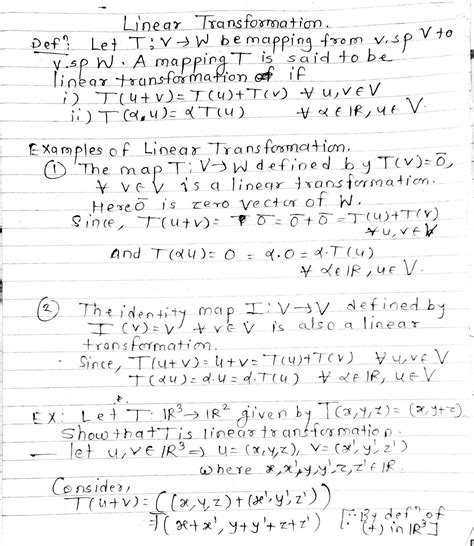 Linear Transformation.
Defⁿ: Let T: V→W be mapping from v.sp V to
v.sp W. A mapping T is said to be
linear transformation of if
i) T(u+v) = T(u)+T(v) ∀ u,v∈V
ii) T(α.u) = αT(u) ∀ α∈IR, u∈V.
Examples of Linear Transformation.
① The map T: V→W defined by T(v)=ō,
∀ v∈V is a linear transformation.
Here ō is zero vector of W.
Since, T(u+v) = ō = ō+ō = T(u)+T(v)
∀ u,v∈V
and T(αu) = 0 = α.0 = α.T(u)
∀ α∈IR, u∈V.
② The identity map I: V→V defined by
I(v)=v ∀ v∈V is also a linear
transformation.
Since, T(u+v) = u+v = T(u)+T(v) ∀ u,v∈V
T(αu) = α.u = α.T(u) ∀ α∈IR, u∈V
Ex: Let T: IR³→IR² given by T(x,y,z) = (x,y+z).
Show that T is linear transformation.
let u,v∈IR³ ⇒ u=(x,y,z), v=(x',y',z')
where x,x',y,y',z,z'∈IR.
Consider,
T(u+v) = ((x,y,z)+(x',y',z'))
= T(x+x', y+y'+z+z') [∵ By defⁿ of
(+) in IR³]